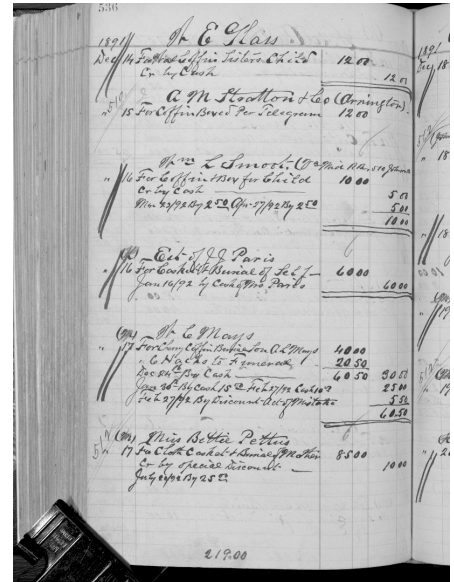 536
W E Glass
1891
Dec 14 For Coffin Sisters Child 12 00
Cr by Cash 12 00
A M Stratton & Co (Orrington)
" 15 For Coffin Boxed Per Telegram 12 00
Wm L Smoot
" 16 For Coffin & Box for Child 10 00
Cr by Cash 5 00
Mar 29/92 By 2 50 Apr 27/92 By 2 50 5 00
10 00
Est of J J Paris
" 16 For Casket & Burial of Self 60 00
Jan 16/92 by Cash of Mrs Paris 60 00
W C Mays
" 17 For Coffin Burial Son A L Mays 40 00
" 6 Hacks to Funeral 20 50
Dec 24 By Cash 60 50 30 00
Jan 30 By Cash 15 Feb 27/92 Cash 10 25 00
Feb 27/92 By Discount Act of Mistake 5 50
60.50
Miss Bettie Pettus
" 17 For Cloth Casket & Burial of Mother 85 00
Cr by Special Discount 10 00
July 20/92 By 25
219.00
1891
Dec 18